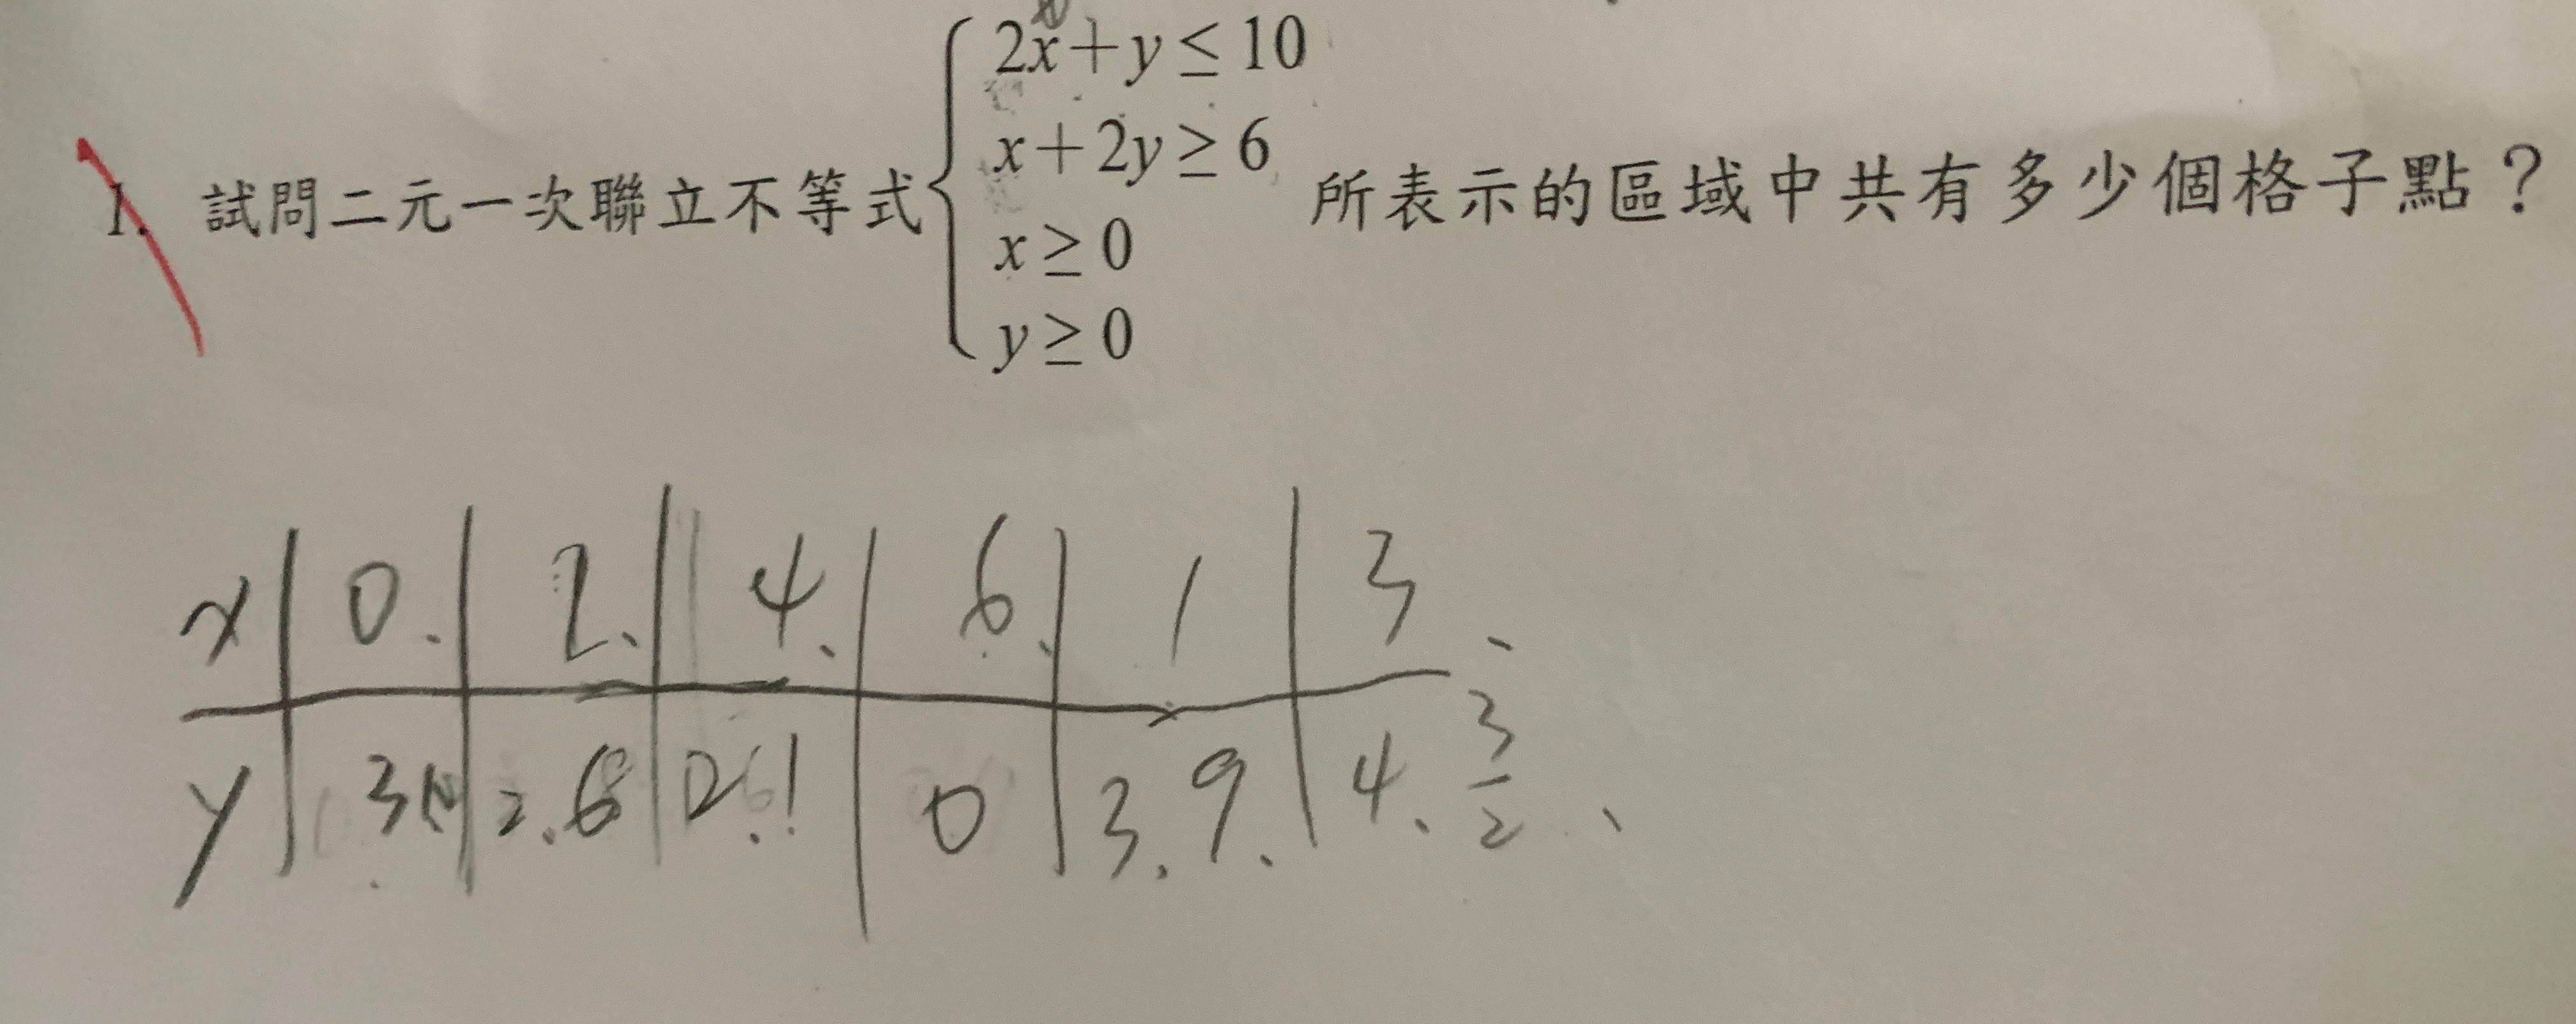 2x+y≤10
x+2y≥6
1. 試問二元一次聯立不等式 所表示的區域中共有多少個格子點？
x≥0
y≥0
x 0. 2. 4. 6. 1 3
y 3 2.6 0 3.9. 4. 3/2